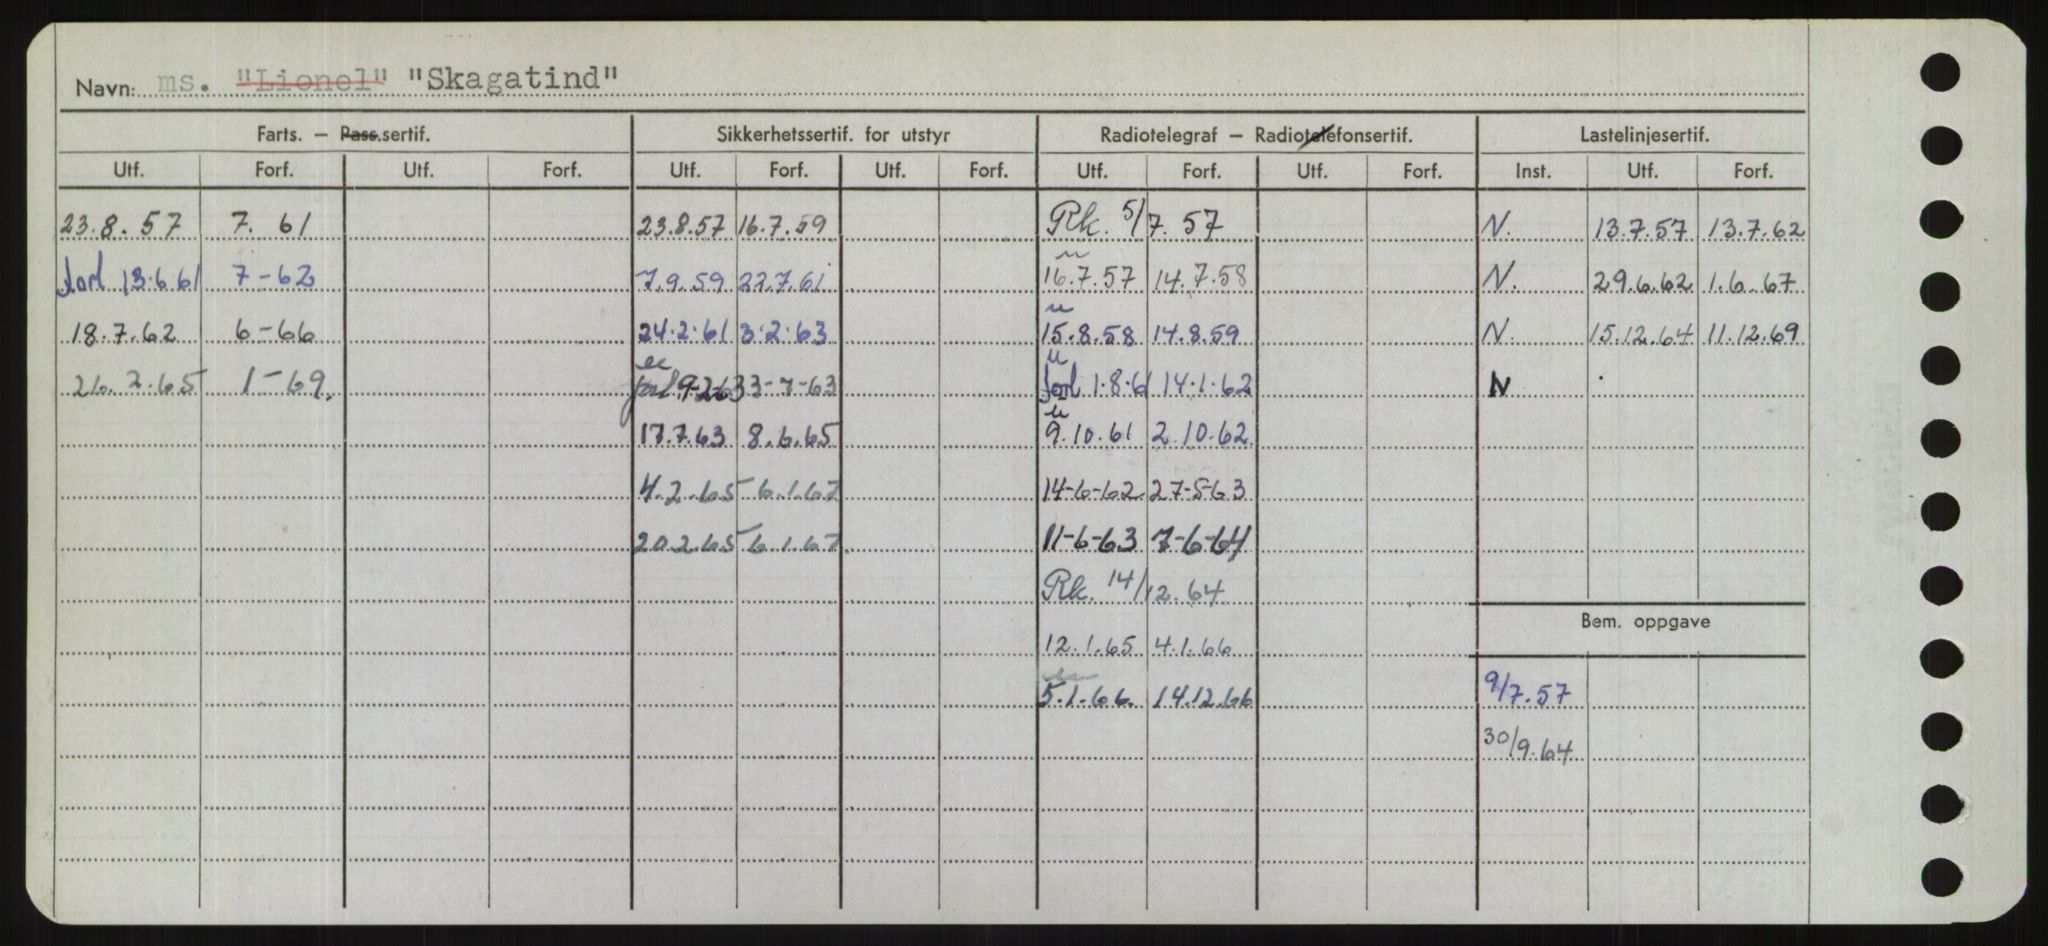 Navn: ms. "Lionel" "Skagatind"
Farts. — Pass.sertif. Sikkerhetssertif. for utstyr Radiotelegraf — Radiotelefonsertif. Lastelinjesertif.
Utf. Forf. Utf. Forf. Utf. Forf. Utf. Forf. Utf. Forf. Utf. Forf. Inst. Utf. Forf.
23.8.57 7. 61 23.8.57 16.7.59 Rk. 5/7. 57 N. 13.7.57 13.7.62
forl 13.6 61 7-62 7.9.59 22.7.61 16.7.57 14.7.58 N. 29.6.62 1.6.67
18.7.62 6-66 24.2.61 3.2.63 15.8.58 14.8.59 N. 15.12.64 11.12.69
26.2.65 1-69. forl 9-2-63 3-7-63 forl 1.8.61 14.1.62 N
17.7.63 8.6.65 9.10.61 2.10.62
4.2.65 6.1.67 14-6-62 27-5-63
20.2.65 6.1.67 11-6-63 7-6-64
Rk. 14/12.64
Bem. oppgave
12.1.65 4.1.66
5.1.66. 14.12.66 9/7.57
30/9.64